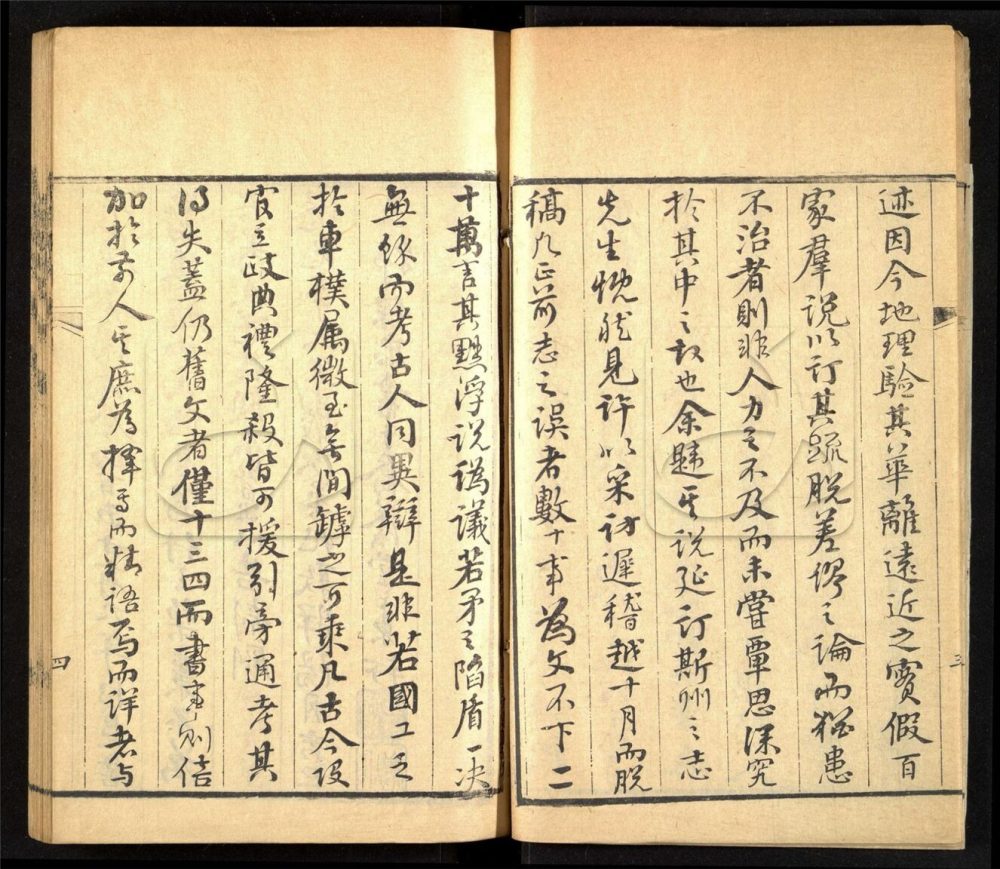 迹因今地理驗其華離遠近之實假百
家羣說以訂其疏脫差繆之論而猶患
不治者則非人力之不及而未嘗覃思深究
於其中之故也余韙其說延訂斯州之志
先生慨然見許以采訪遲稽越十月而脫
稿凡正前志之誤者數十事為文不下二
十萬言其黜浮說偽議若矛之陷盾一決
無餘而考古人同異辯是非若國工之
於車樸属微至無間罅之可乘凡古今設
官立政典禮隆殺皆可援引旁通考其
得失蓋仍舊文者僅十三四而書事則倍
加於前人其庶為擇焉而精語焉而詳者與
三
四